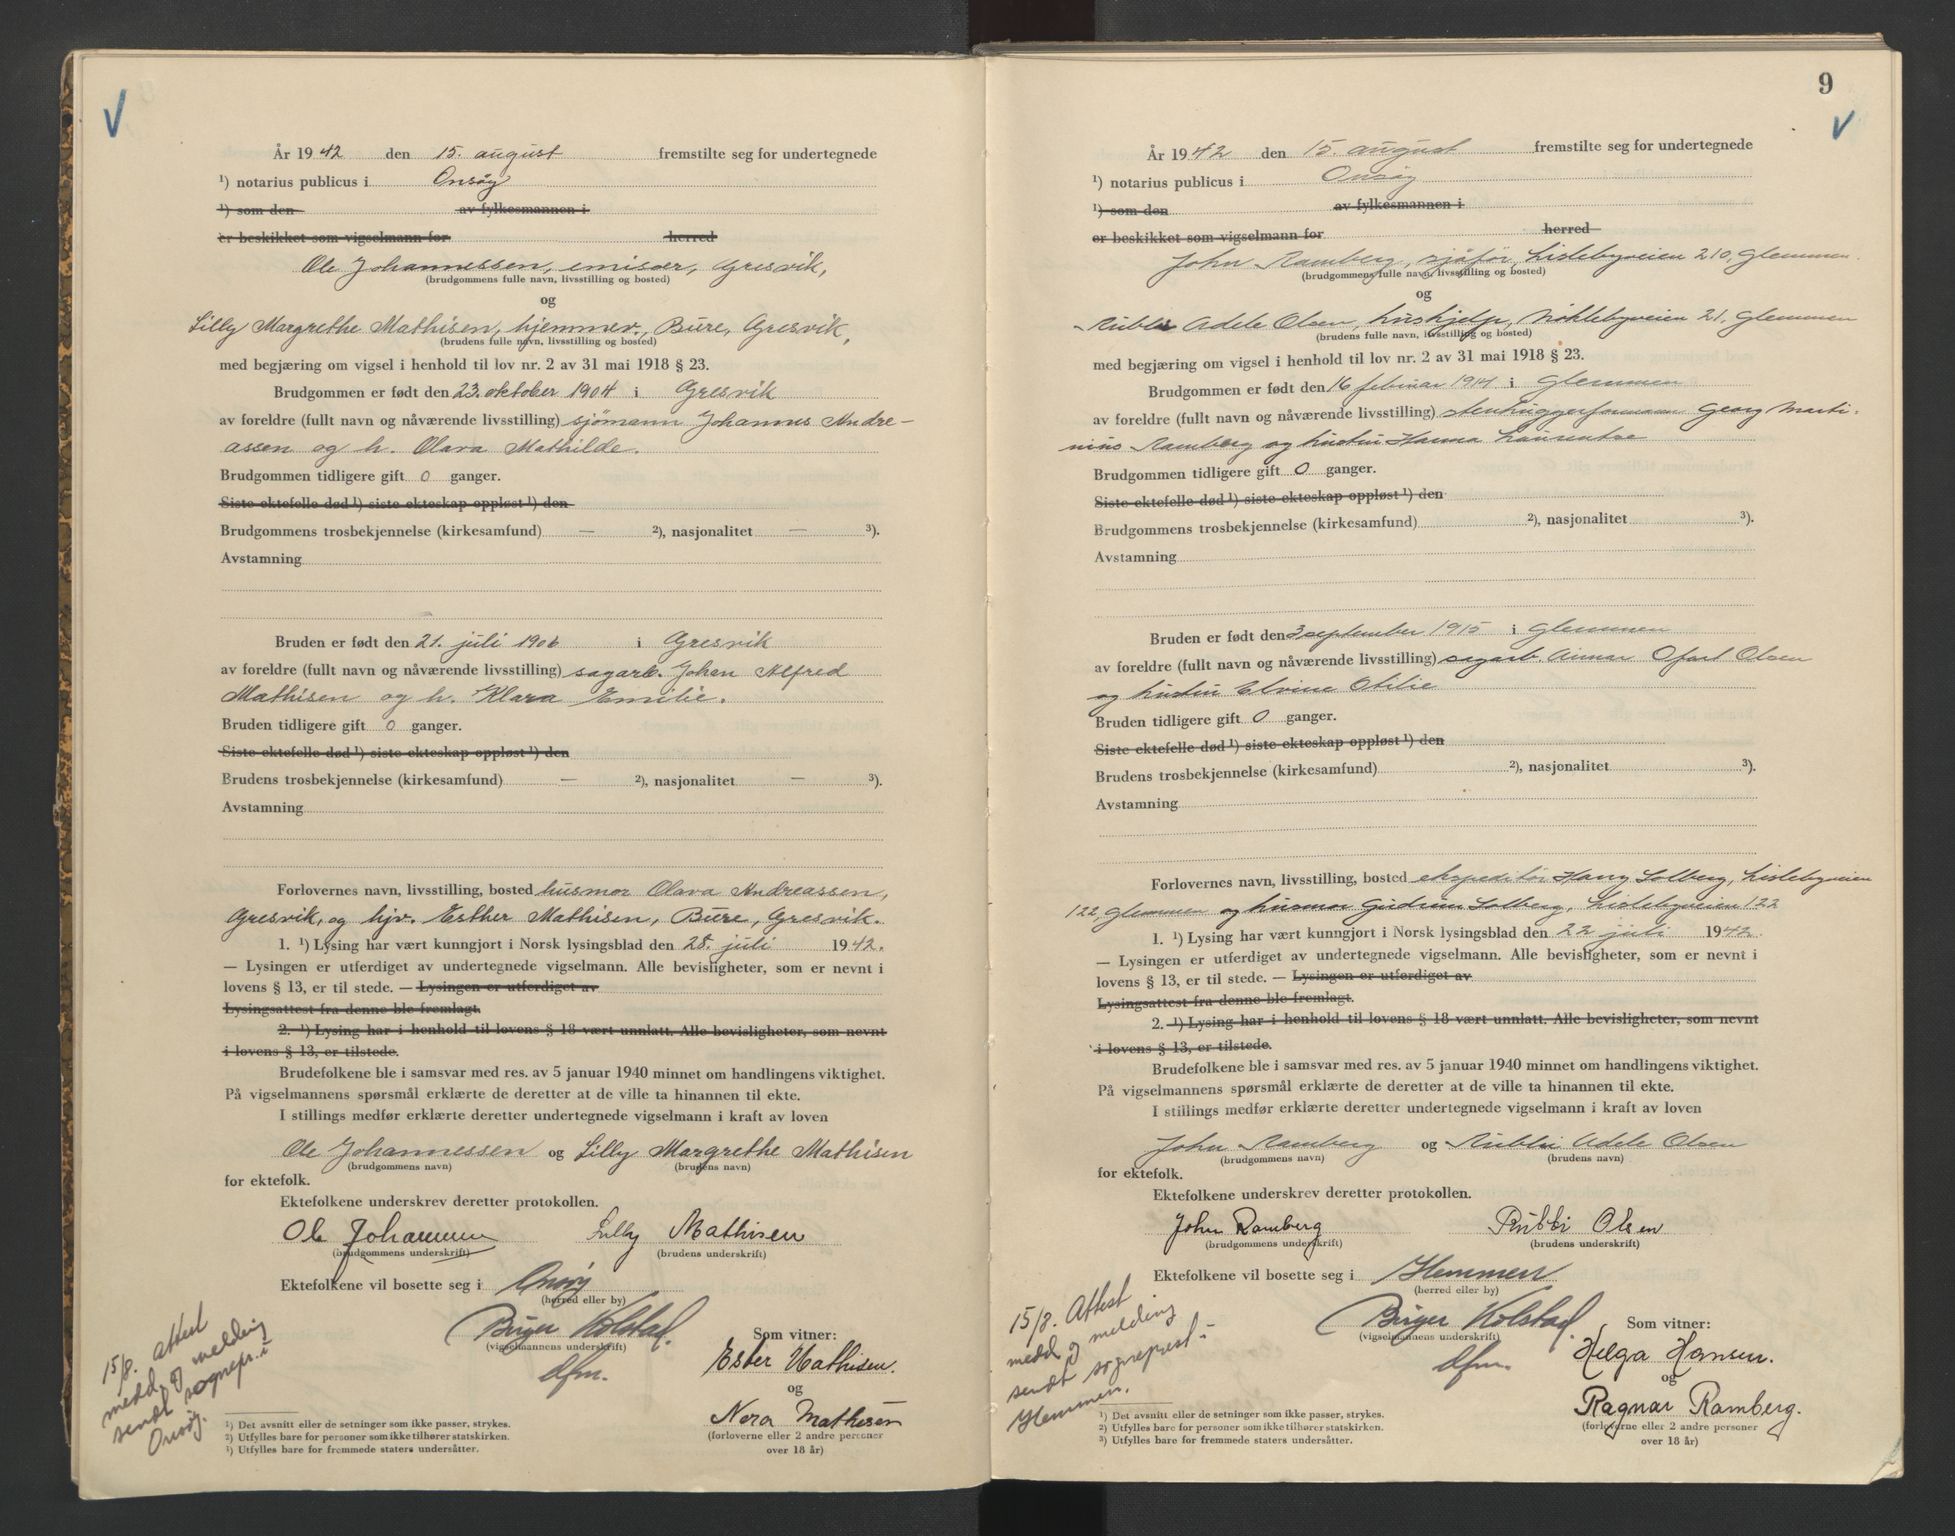 År 1942 den 15. august fremstilte seg for undertegnede
¹) notarius publicus i Onsøy
¹) som den av fylkesmannen i
er beskikket som vigselmann for herred
Ole Johannessen, emisær, Gresvik,
(brudgommens fulle navn, livsstilling og bosted)
og
Lilly Margrethe Mathisen, hjemmev., Bure, Gresvik,
(brudens fulle navn, livsstilling og bosted)
med begjæring om vigsel i henhold til lov nr. 2 av 31 mai 1918 § 23.
Brudgommen er født den 23. oktober 1904 i Gresvik
av foreldre (fullt navn og nåværende livsstilling) sjømann Johannes Andre-
assen og h. Olava Mathilde.
Brudgommen tidligere gift 0 ganger.
Siste ektefelle død ¹) siste ekteskap oppløst ¹) den
Brudgommens trosbekjennelse (kirkesamfund) — ²), nasjonalitet — ³).
Avstamning
Bruden er født den 21. juli 1906 i Gresvik
av foreldre (fullt navn og nåværende livsstilling) sagarb. Johan Alfred
Mathisen og h. Klara Emilie.
Bruden tidligere gift 0 ganger.
Siste ektefelle død ¹) siste ekteskap oppløst ¹) den
Brudens trosbekjennelse (kirkesamfund) — ²), nasjonalitet — ³).
Avstamning
Forlovernes navn, livsstilling, bosted husmor Olava Andreassen,
Gresvik, og hjv. Esther Mathisen, Bure, Gresvik.
1. ¹) Lysing har vært kunngjort i Norsk lysingsblad den 28. juli 1942.
— Lysingen er utferdiget av undertegnede vigselmann. Alle bevisligheter, som er nevnt i
lovens § 13, er til stede. — Lysingen er utferdiget av
Lysingsattest fra denne ble fremlagt.
2. ¹) Lysing har i henhold til lovens § 18 vært unnlatt. Alle bevisligheter, som nevnt
i lovens § 13, er tilstede.
Brudefolkene ble i samsvar med res. av 5 januar 1940 minnet om handlingens viktighet.
På vigselmannens spørsmål erklærte de deretter at de ville ta hinannen til ekte.
I stillings medfør erklærte deretter undertegnede vigselmann i kraft av loven
Ole Johannessen og Lilly Margrethe Mathisen
(brudgommens navn) (brudens navn)
for ektefolk.
Ektefolkene underskrev deretter protokollen.
Ole Johannessen Lilly Mathisen
(brudgommens underskrift) (brudens underskrift)
Ektefolkene vil bosette seg i Onsøy
(herred eller by)
Birger Kolstad. Som vitner:
(vigselmannens underskrift)
dfm.
Ester Mathisen.
og
Nora Mathisen
(forloverne eller 2 andre personer
over 18 år)
15/8. attest
medd. og melding
sendt sognepr. i
Onsøy.
¹) Det avsnitt eller de setninger som ikke passer, strykes.
²) Utfylles bare for personer som ikke tilhører statskirken.
³) Utfylles bare for fremmede staters undersåtter.
9
År 1942 den 15. august fremstilte seg for undertegnede
¹) notarius publicus i Onsøy
¹) som den av fylkesmannen i
er beskikket som vigselmann for herred
John Ramberg, sjåfør, Lislebyveien 210, Glemmen.
(brudgommens fulle navn, livsstilling og bosted)
og
Rubbi Adele Olsen, hushjelp, Nøklebyveien 21, Glemmen
(brudens fulle navn, livsstilling og bosted)
med begjæring om vigsel i henhold til lov nr. 2 av 31 mai 1918 § 23.
Brudgommen er født den 16 februar 1914 i Glemmen
av foreldre (fullt navn og nåværende livsstilling) stenhuggerformann Georg Marti-
nius Ramberg og hustru Hanna Laurentse
Brudgommen tidligere gift 0 ganger.
Siste ektefelle død ¹) siste ekteskap oppløst ¹) den
Brudgommens trosbekjennelse (kirkesamfund) ²), nasjonalitet ³).
Avstamning
Bruden er født den 3 september 1915 i Glemmen
av foreldre (fullt navn og nåværende livsstilling) sagarb. Olsen
og hustru Elvine Otilie
Bruden tidligere gift 0 ganger.
Siste ektefelle død ¹) siste ekteskap oppløst ¹) den
Brudens trosbekjennelse (kirkesamfund) ²), nasjonalitet ³).
Avstamning
Forlovernes navn, livsstilling, bosted ekspeditør Harry Solberg, Lislebyveien
122, Glemmen og husmor Gudrun Solberg, Lislebyveien 122
1. ¹) Lysing har vært kunngjort i Norsk lysingsblad den 22 juli 1942.
— Lysingen er utferdiget av undertegnede vigselmann. Alle bevisligheter, som er nevnt i
lovens § 13, er til stede. — Lysingen er utferdiget av
Lysingsattest fra denne ble fremlagt.
2. ¹) Lysing har i henhold til lovens § 18 vært unnlatt. Alle bevisligheter, som nevnt
i lovens § 13, er tilstede.
Brudefolkene ble i samsvar med res. av 5 januar 1940 minnet om handlingens viktighet.
På vigselmannens spørsmål erklærte de deretter at de ville ta hinannen til ekte.
I stillings medfør erklærte deretter undertegnede vigselmann i kraft av loven
John Ramberg og Rubbi Adele Olsen
(brudgommens navn) (brudens navn)
for ektefolk.
Ektefolkene underskrev deretter protokollen.
John Ramberg Rubbi Olsen
(brudgommens underskrift) (brudens underskrift)
Ektefolkene vil bosette seg i Glemmen
(herred eller by)
Birger Kolstad. Som vitner:
(vigselmannens underskrift)
dfm.
Helga Hansen.
og
Ragnar Ramberg.
(forloverne eller 2 andre personer
over 18 år)
15/8. Attest
medd. og melding
sendt sogneprest i
Glemmen.
¹) Det avsnitt eller de setninger som ikke passer, strykes.
²) Utfylles bare for personer som ikke tilhører statskirken.
³) Utfylles bare for fremmede staters undersåtter.